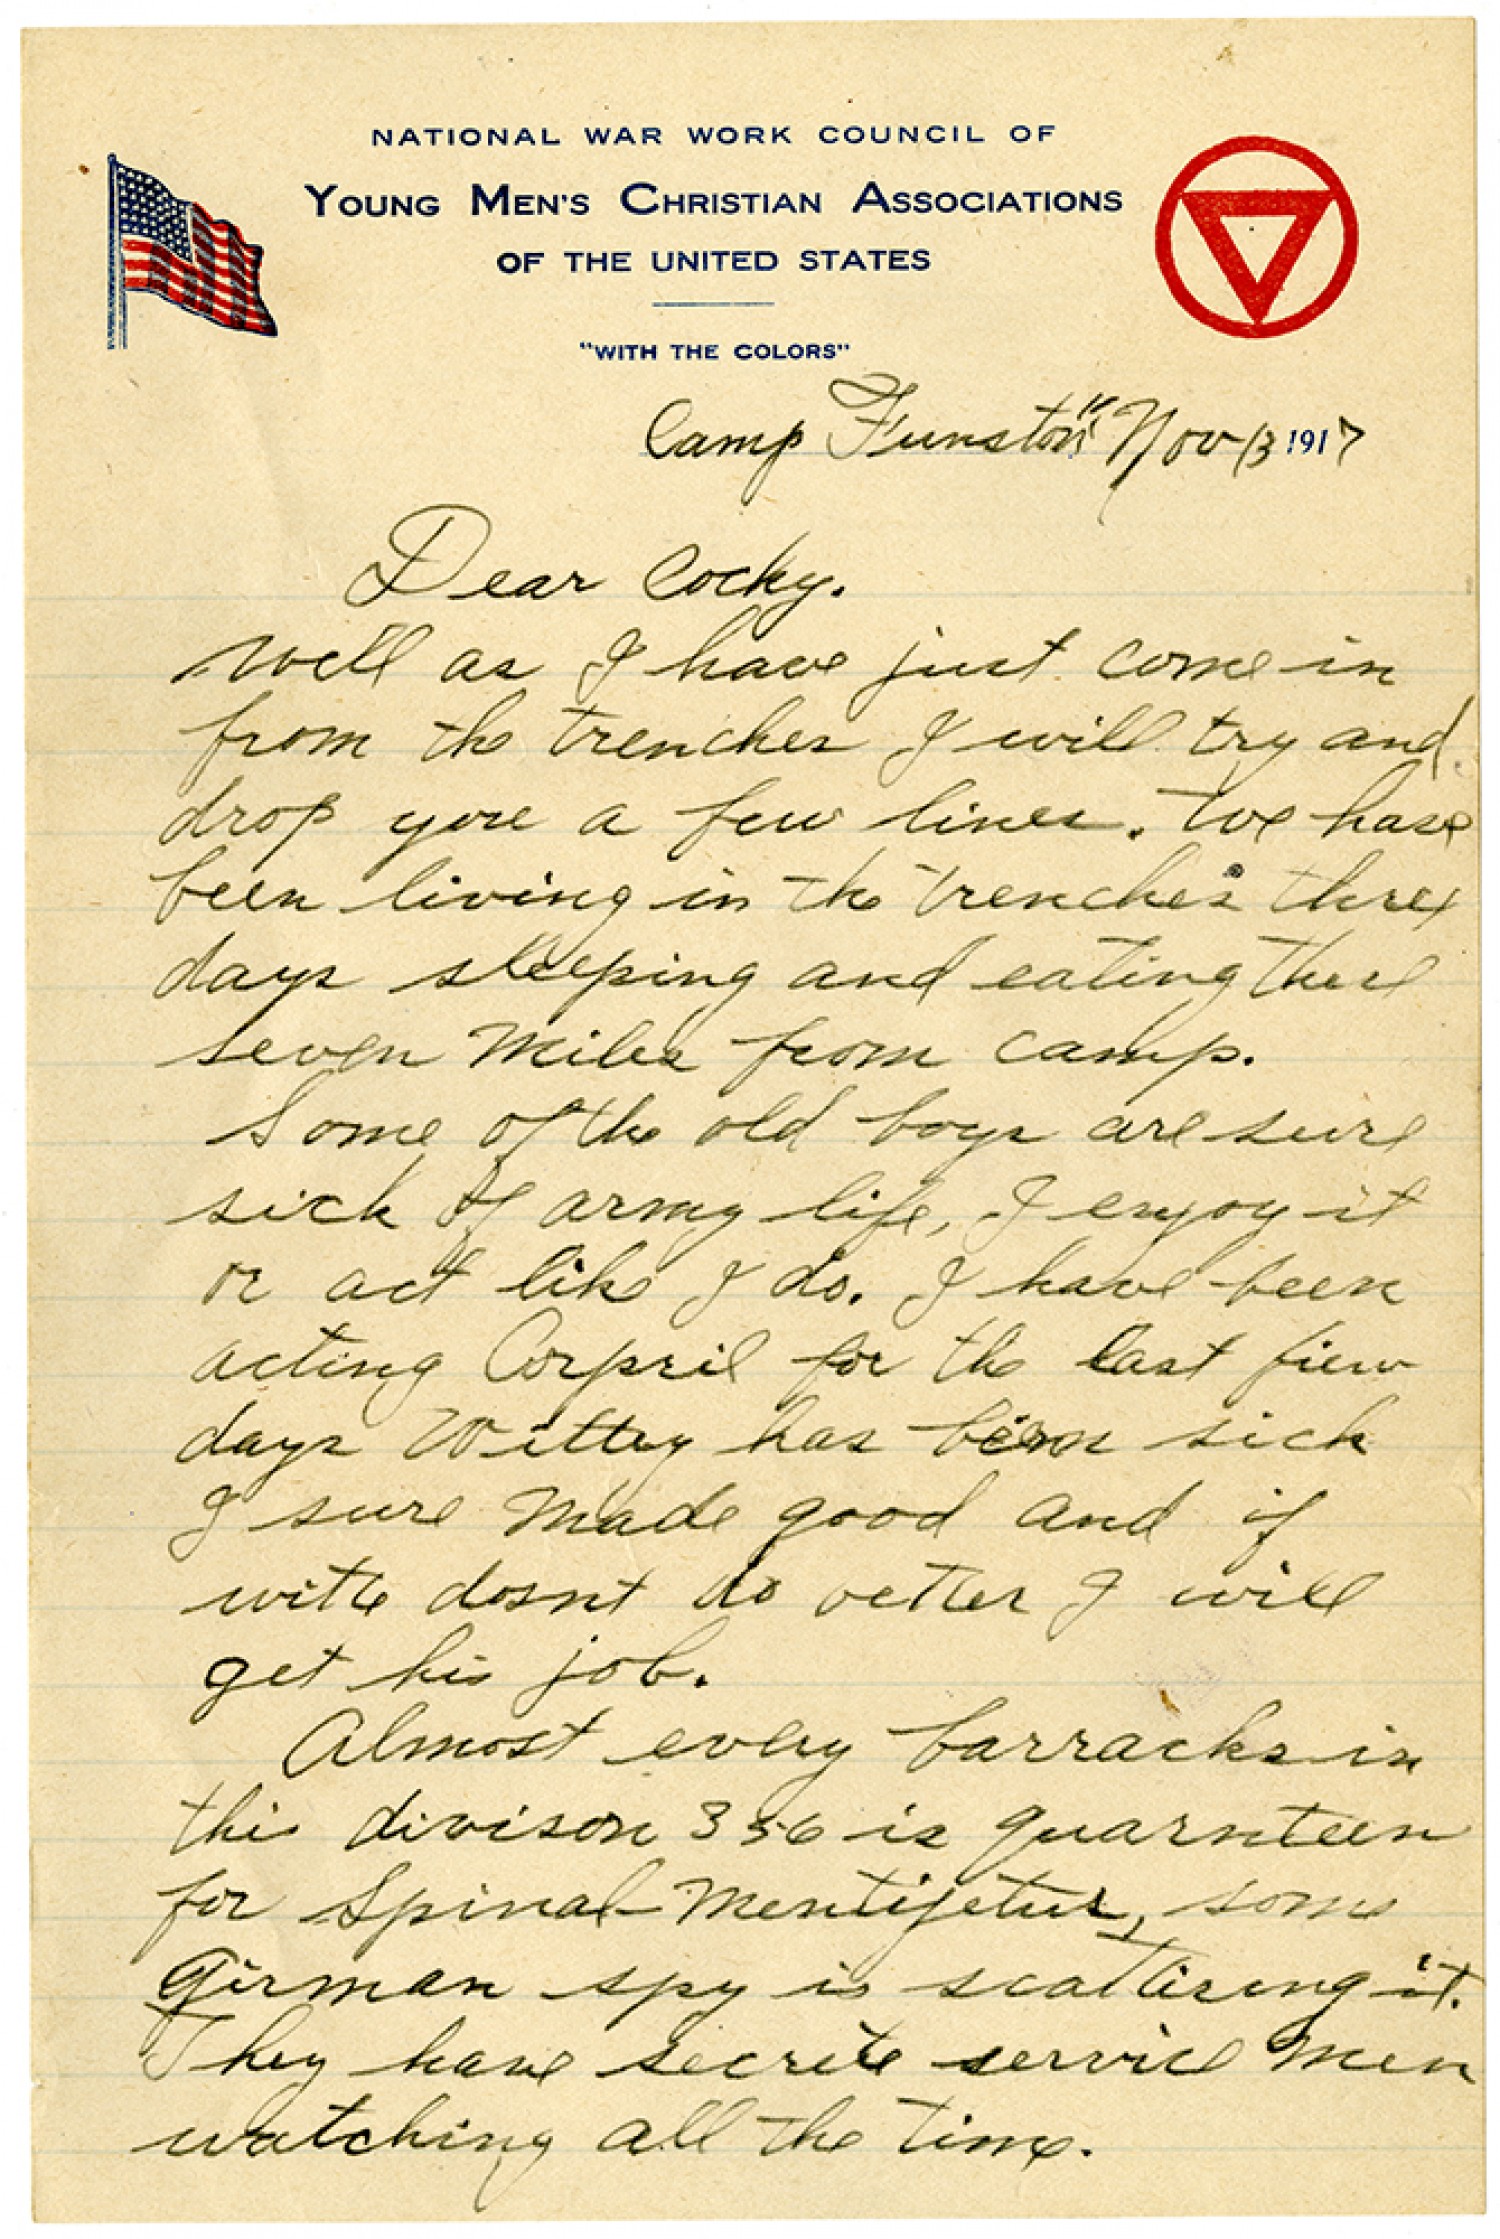 NATIONAL WAR WORK COUNCIL OF
YOUNG MEN'S CHRISTIAN ASSOCIATIONS
OF THE UNITED STATES
"WITH THE COLORS"
Camp Funston" Nov 13 1917
Dear Cocky.
Well as I have just come in
from the trenches I will try and
drop you a few lines. We have
been living in the trenches three
days sleeping and eating there
seven miles from camp.
Some of the old boys are sure
sick of army life, I enjoy it
or act like I do. I have been
acting Corpril for the last fiew
days Wittey has been sick
I sure made good and if
witte dosnt do better I will
get his job.
Almost every barracks in
this divison 356 is quarnteen
for Spinal Mentijetus, some
German spy is scattering it.
They have secrete service men
watching all the time.